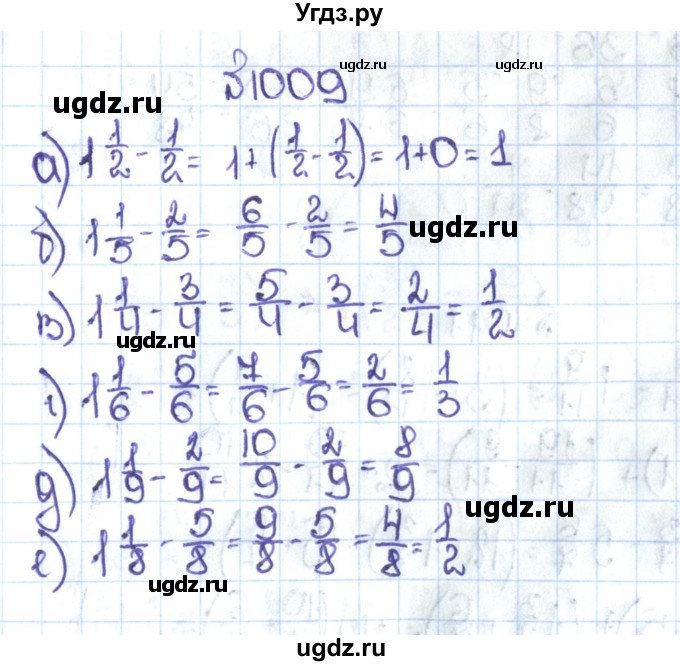 Угдз.ру
ugdz.ru ugdz.ru
№1009
ugdz.ru
а) 1 1/2 - 1/2 = 1+(1/2 - 1/2) = 1+0 = 1
б) 1 1/5 - 2/5 = 6/5 - 2/5 = 4/5 ugdz.ru
в) 1 1/4 - 3/4 = 5/4 - 3/4 = 2/4 = 1/2
ugdz.ru
г) 1 1/6 - 5/6 = 7/6 - 5/6 = 2/6 = 1/3
д) 1 1/9 - 2/9 = 10/9 - 2/9 = 8/9
ugdz.ru
е) 1 1/8 - 5/8 = 9/8 - 5/8 = 4/8 = 1/2
ugdz.ru
ugdz.ru